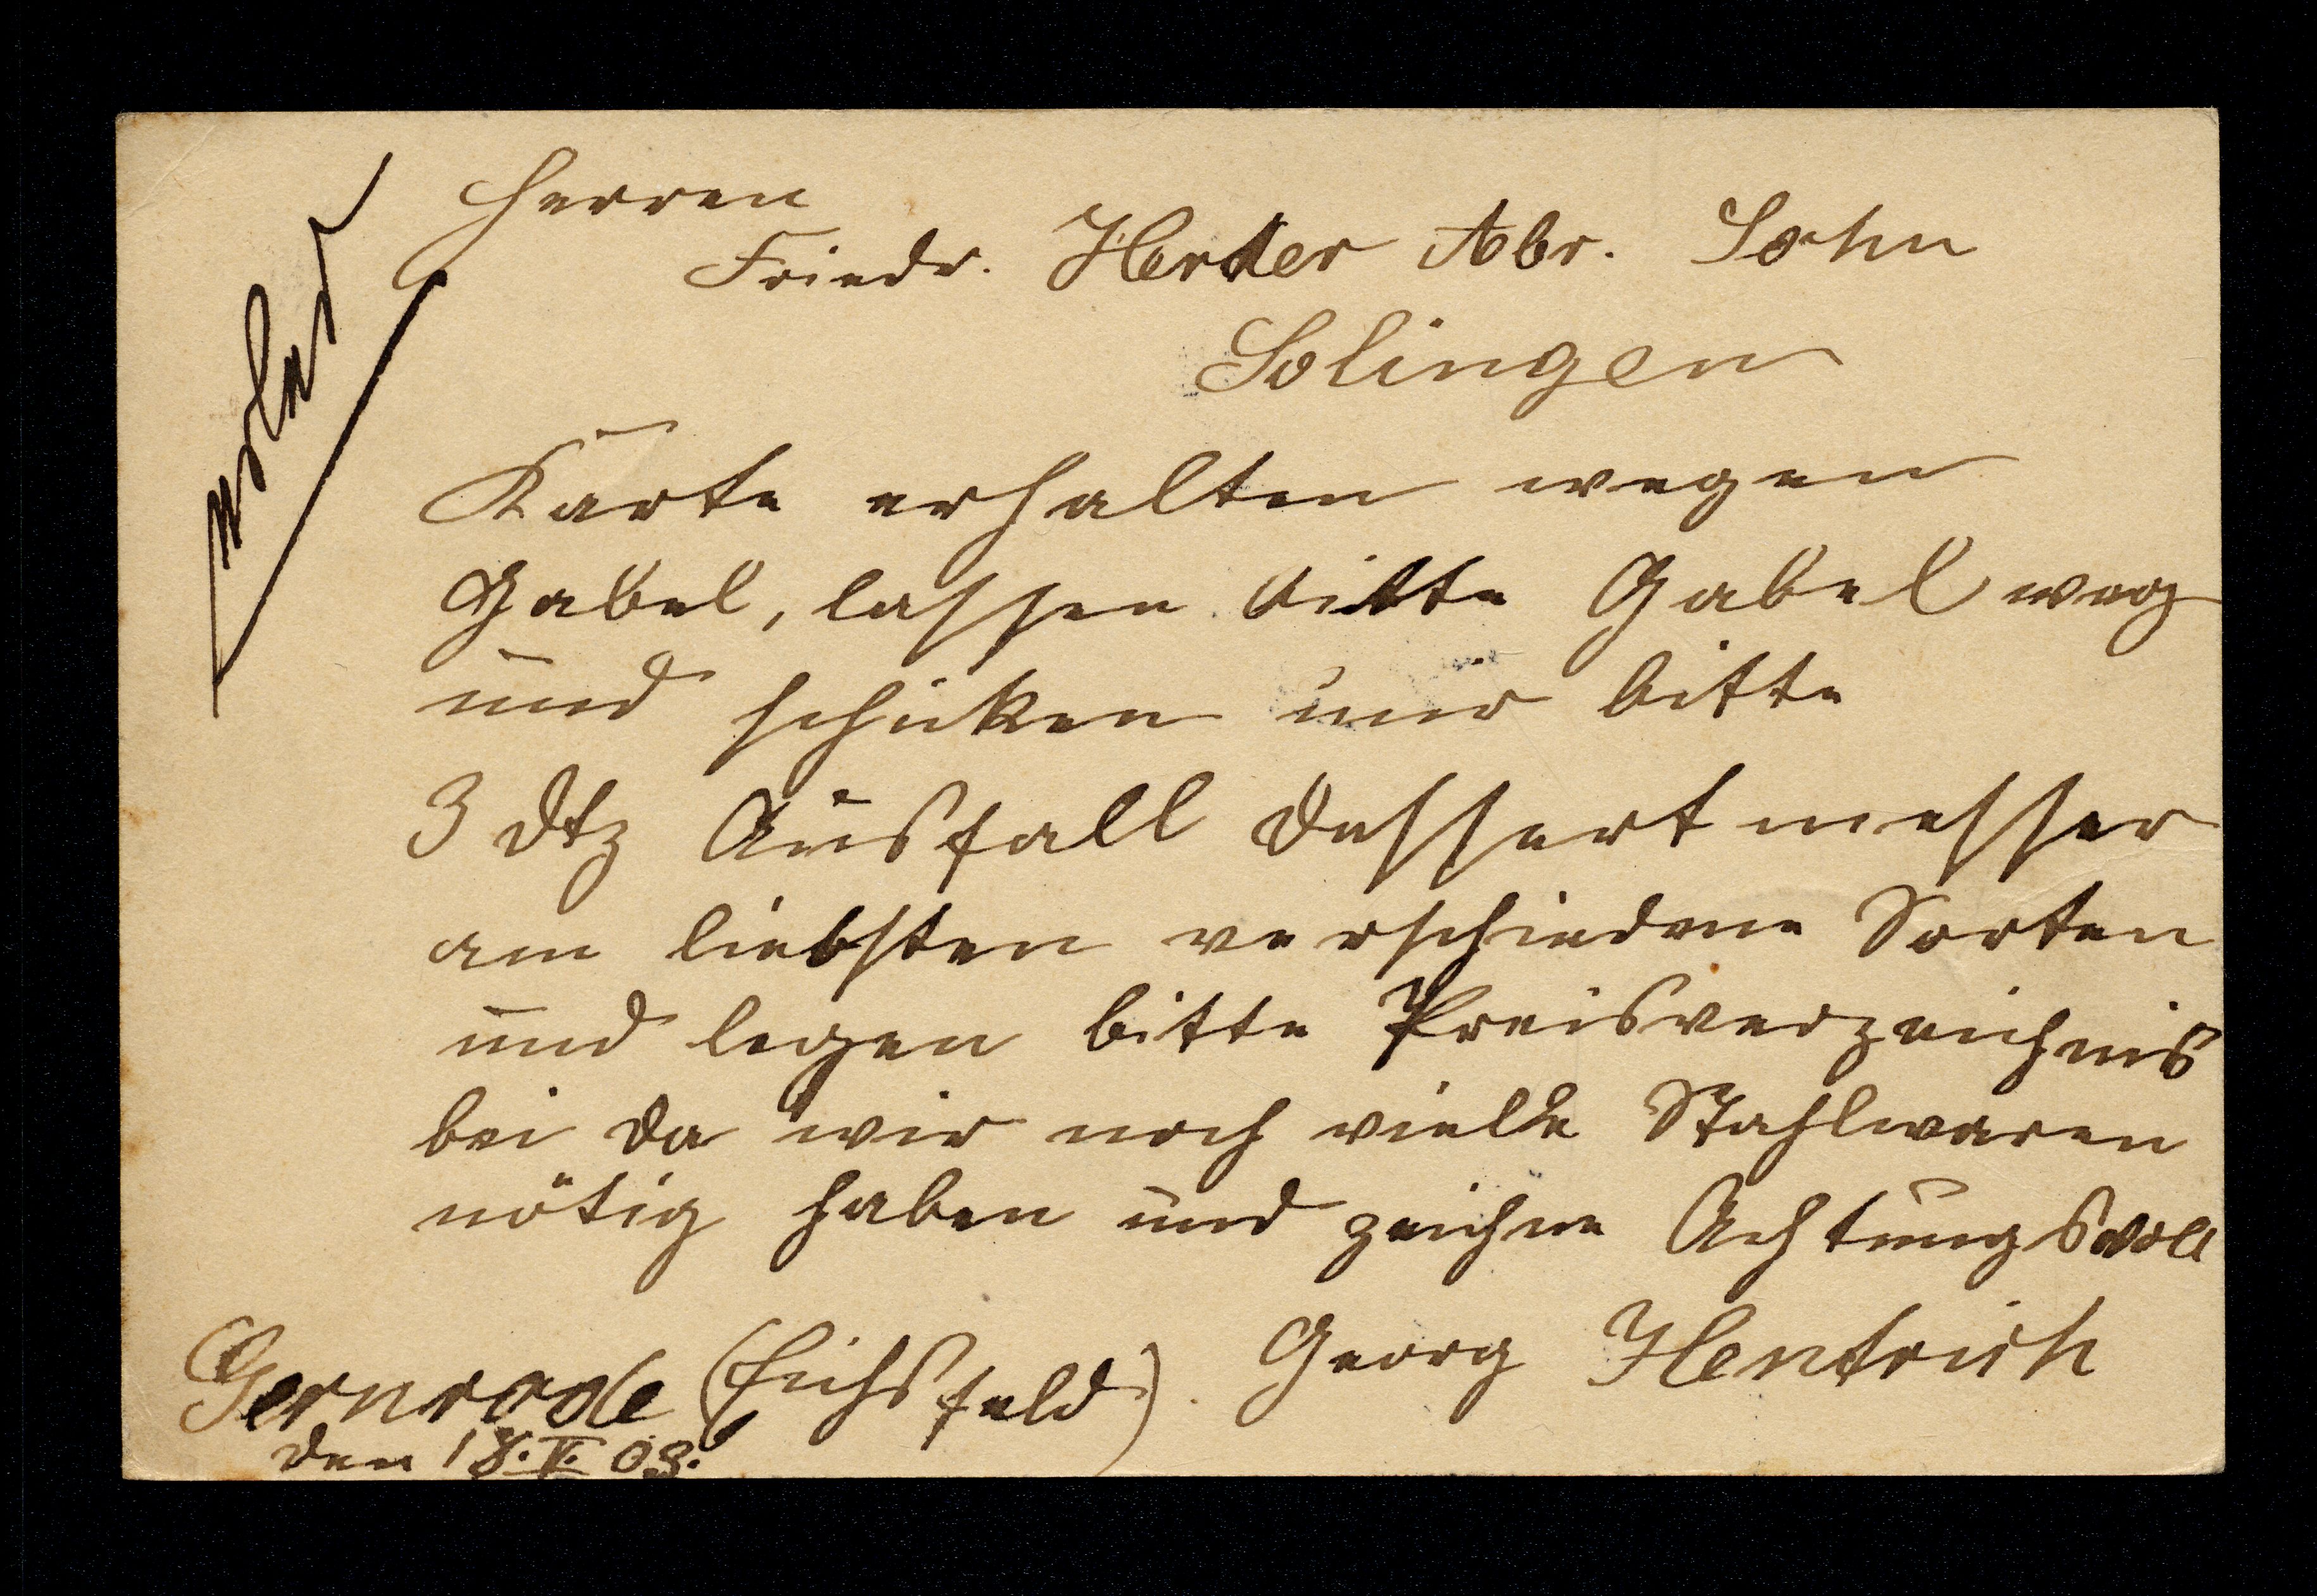 Herren
Friedr. Herder Abr. Sohn
Solingen
Karte erhalten wegen
Gabel, lassen bitte Gabel weg
und schicken nur bitte
3 Dtz Ausfall Dessertmesser
am liebsten verschiedene Sorten
und legen bitte Preisverzeichnis
bei da wir noch vielle Stahlwaren
nötig haben und zeichne Achtungsvoll
Georg Hentrich
Gernrode (Eichsfeld)
den 18.V.08.